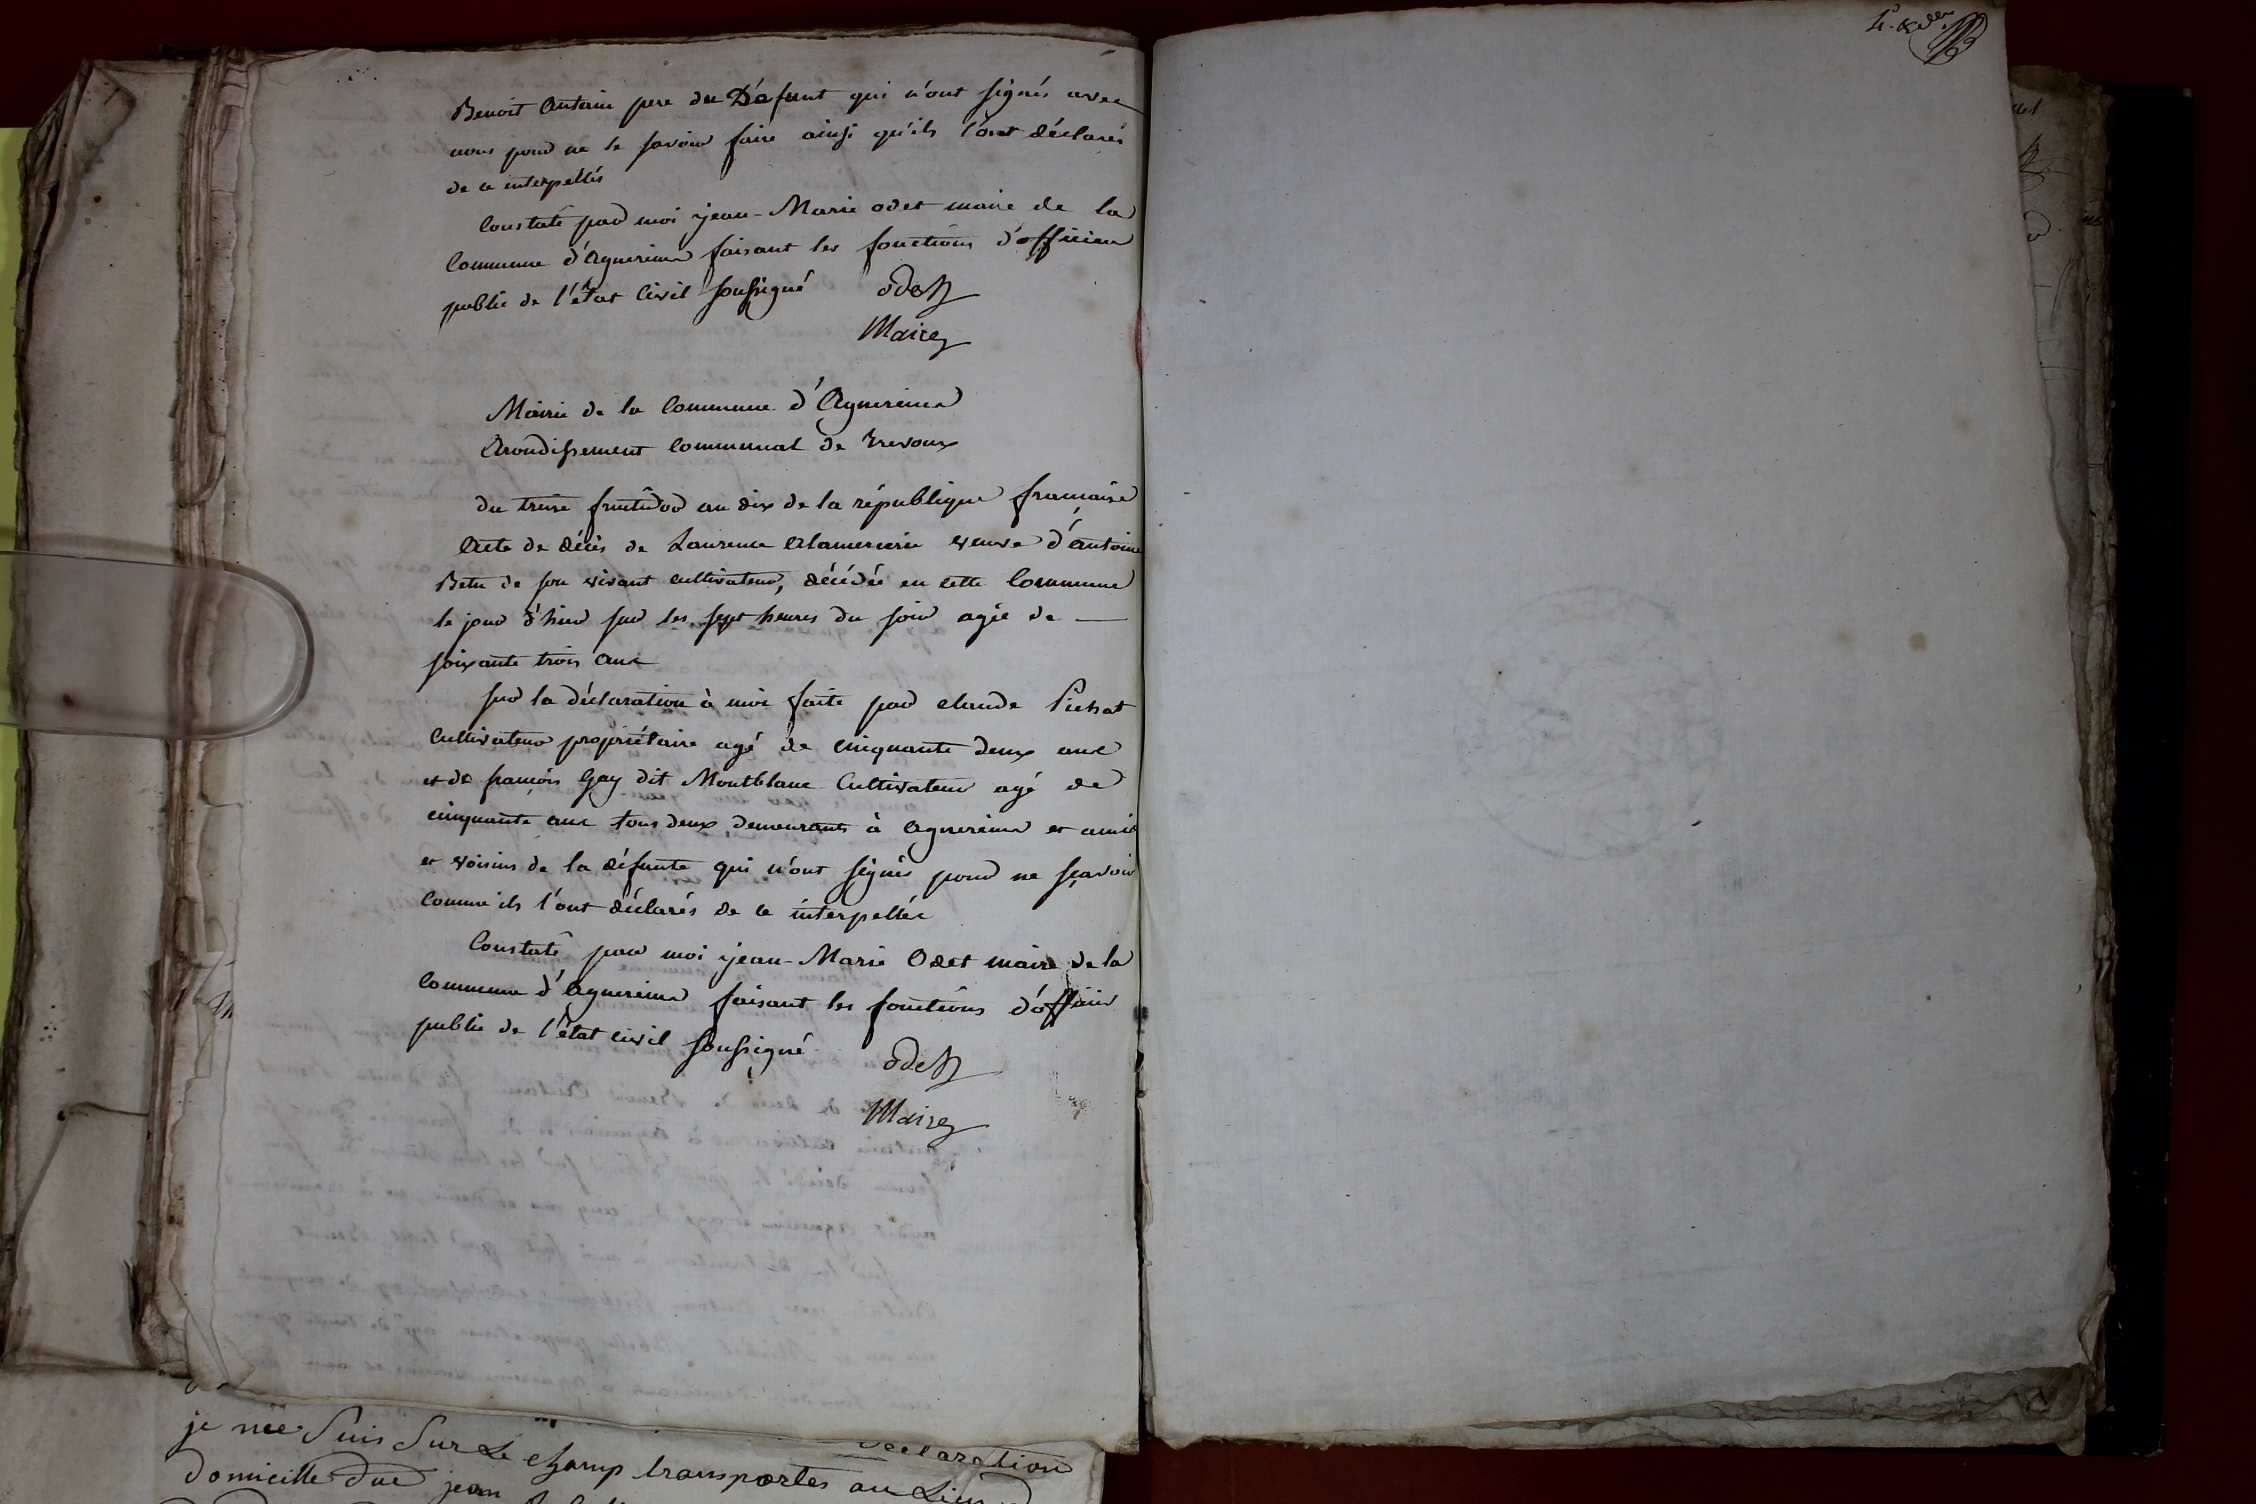 Benoit Antoin pere du Défunt qui n'ont signés avec
nous pour ne le savoir faire ainsi qu'ils l'ont déclarés
de ce interpellés
Constaté par moi jean-Marie odet maire de la
Commune d'Agnereins faisant les fonctions d'officier
public de l'état Civil soussigné odet
Maire
Mairie de la Commune d'Agnereins
Arondissement Communal de Trevoux
du treize fructidor an dix de la république française
Acte de décès de Laurence Alamercerie veuve d'antoine
Betu de son vivant cultivateur, décédée en cette Commune
le jour d'hier sur les sept heures du soir agée de —
soixante trois ans
sur la déclaration à moi faite par claude Pichat
Cultivateur propriétaire agé de cinquante deux ans
et de françois Gay dit Montblanc Cultivateur agé de
cinquante ans tous deux demeurants à agnereins et amis
et voisins de la défunte qui n'ont signés pour ne sçavoir
Comme ils l'ont déclarés de ce interpellés
Constaté par moi jean-Marie Odet maire de la
Commune d'agnereins faisant les fonctions d'officier
public de l'état civil soussigné odet
Maire
déclaration
je me Suis Sur Le champ transportes au Lieu
domicille due jean